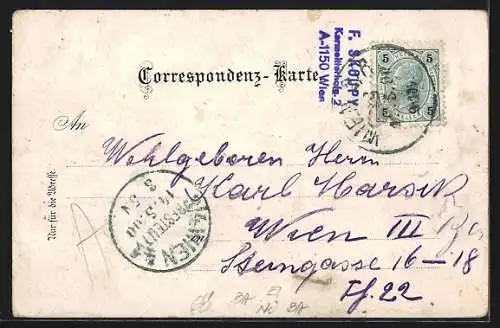 F. SKOUPY
A-1150 Wien
5 5
5 5
WIEN
Correspondenz-Karte
An
Nur für die Adresse
Wohlgeboren Herrn
Karl Harsik
Wien III
Steingasse 16-18
Th. 22
WIEN
BESTELLT
14.5.00